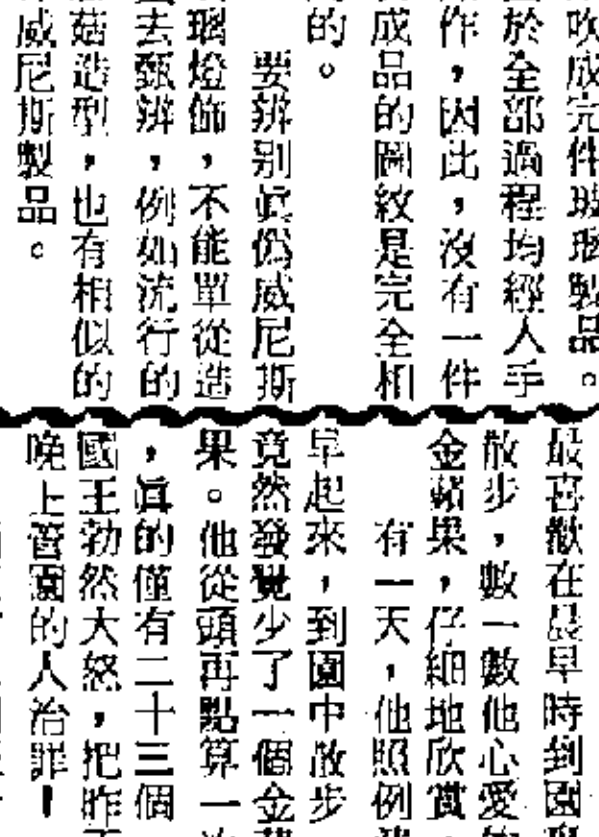 吹成完件玻璃製品。
於全部過程均經人手
作，因此，沒有一件
成品的圖紋是完全相
的。
要辨別眞僞威尼斯
璃燈飾，不能單從造
去甄辨，例如流行的
菇造型，也有相似的
威尼斯製品。
最喜歡在晨早時到園
散步，數一數他心愛
金蘋果，仔細地欣賞。
有一天，他照例
早起來，到園中散步
竟然發覺少了一個金
果。他從頭再點算一
，眞的僅有二十三個
國王勃然大怒，把昨
晚上管園的人治罪！